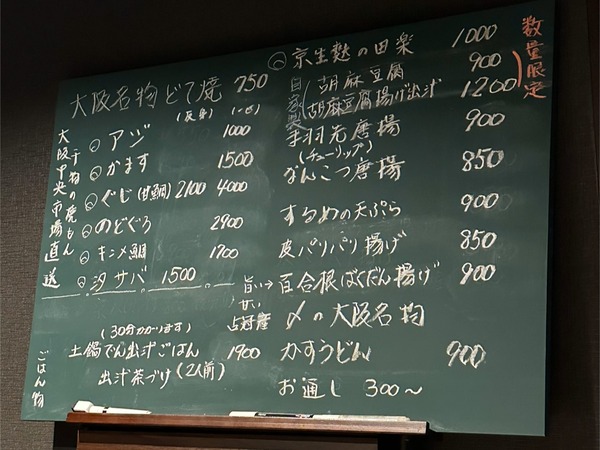 大阪名物 どて焼 750
大阪中央市場直送
干物の焼もん
(反身) (一匹)
アジ 1000
かます 1500
ぐじ(甘鯛) 2100 4000
のどぐろ 2900
キンメ鯛 1700
汐サバ 1500
ごはん物
(30分かかります)
土鍋でん出汁ごはん 1900
出汁茶づけ(2人前)
京生麩の田楽 1000
数量限定
自家製
胡麻豆腐 900
胡麻豆腐揚げ出汁 1200
手羽先唐揚 900
(チューリップ)
なんこつ唐揚 850
するめの天ぷら 900
皮パリパリ揚げ 850
旨い→百合根ばくだん揚げ 900
甘い
〆の大阪名物
かすうどん 900
お通し 300〜